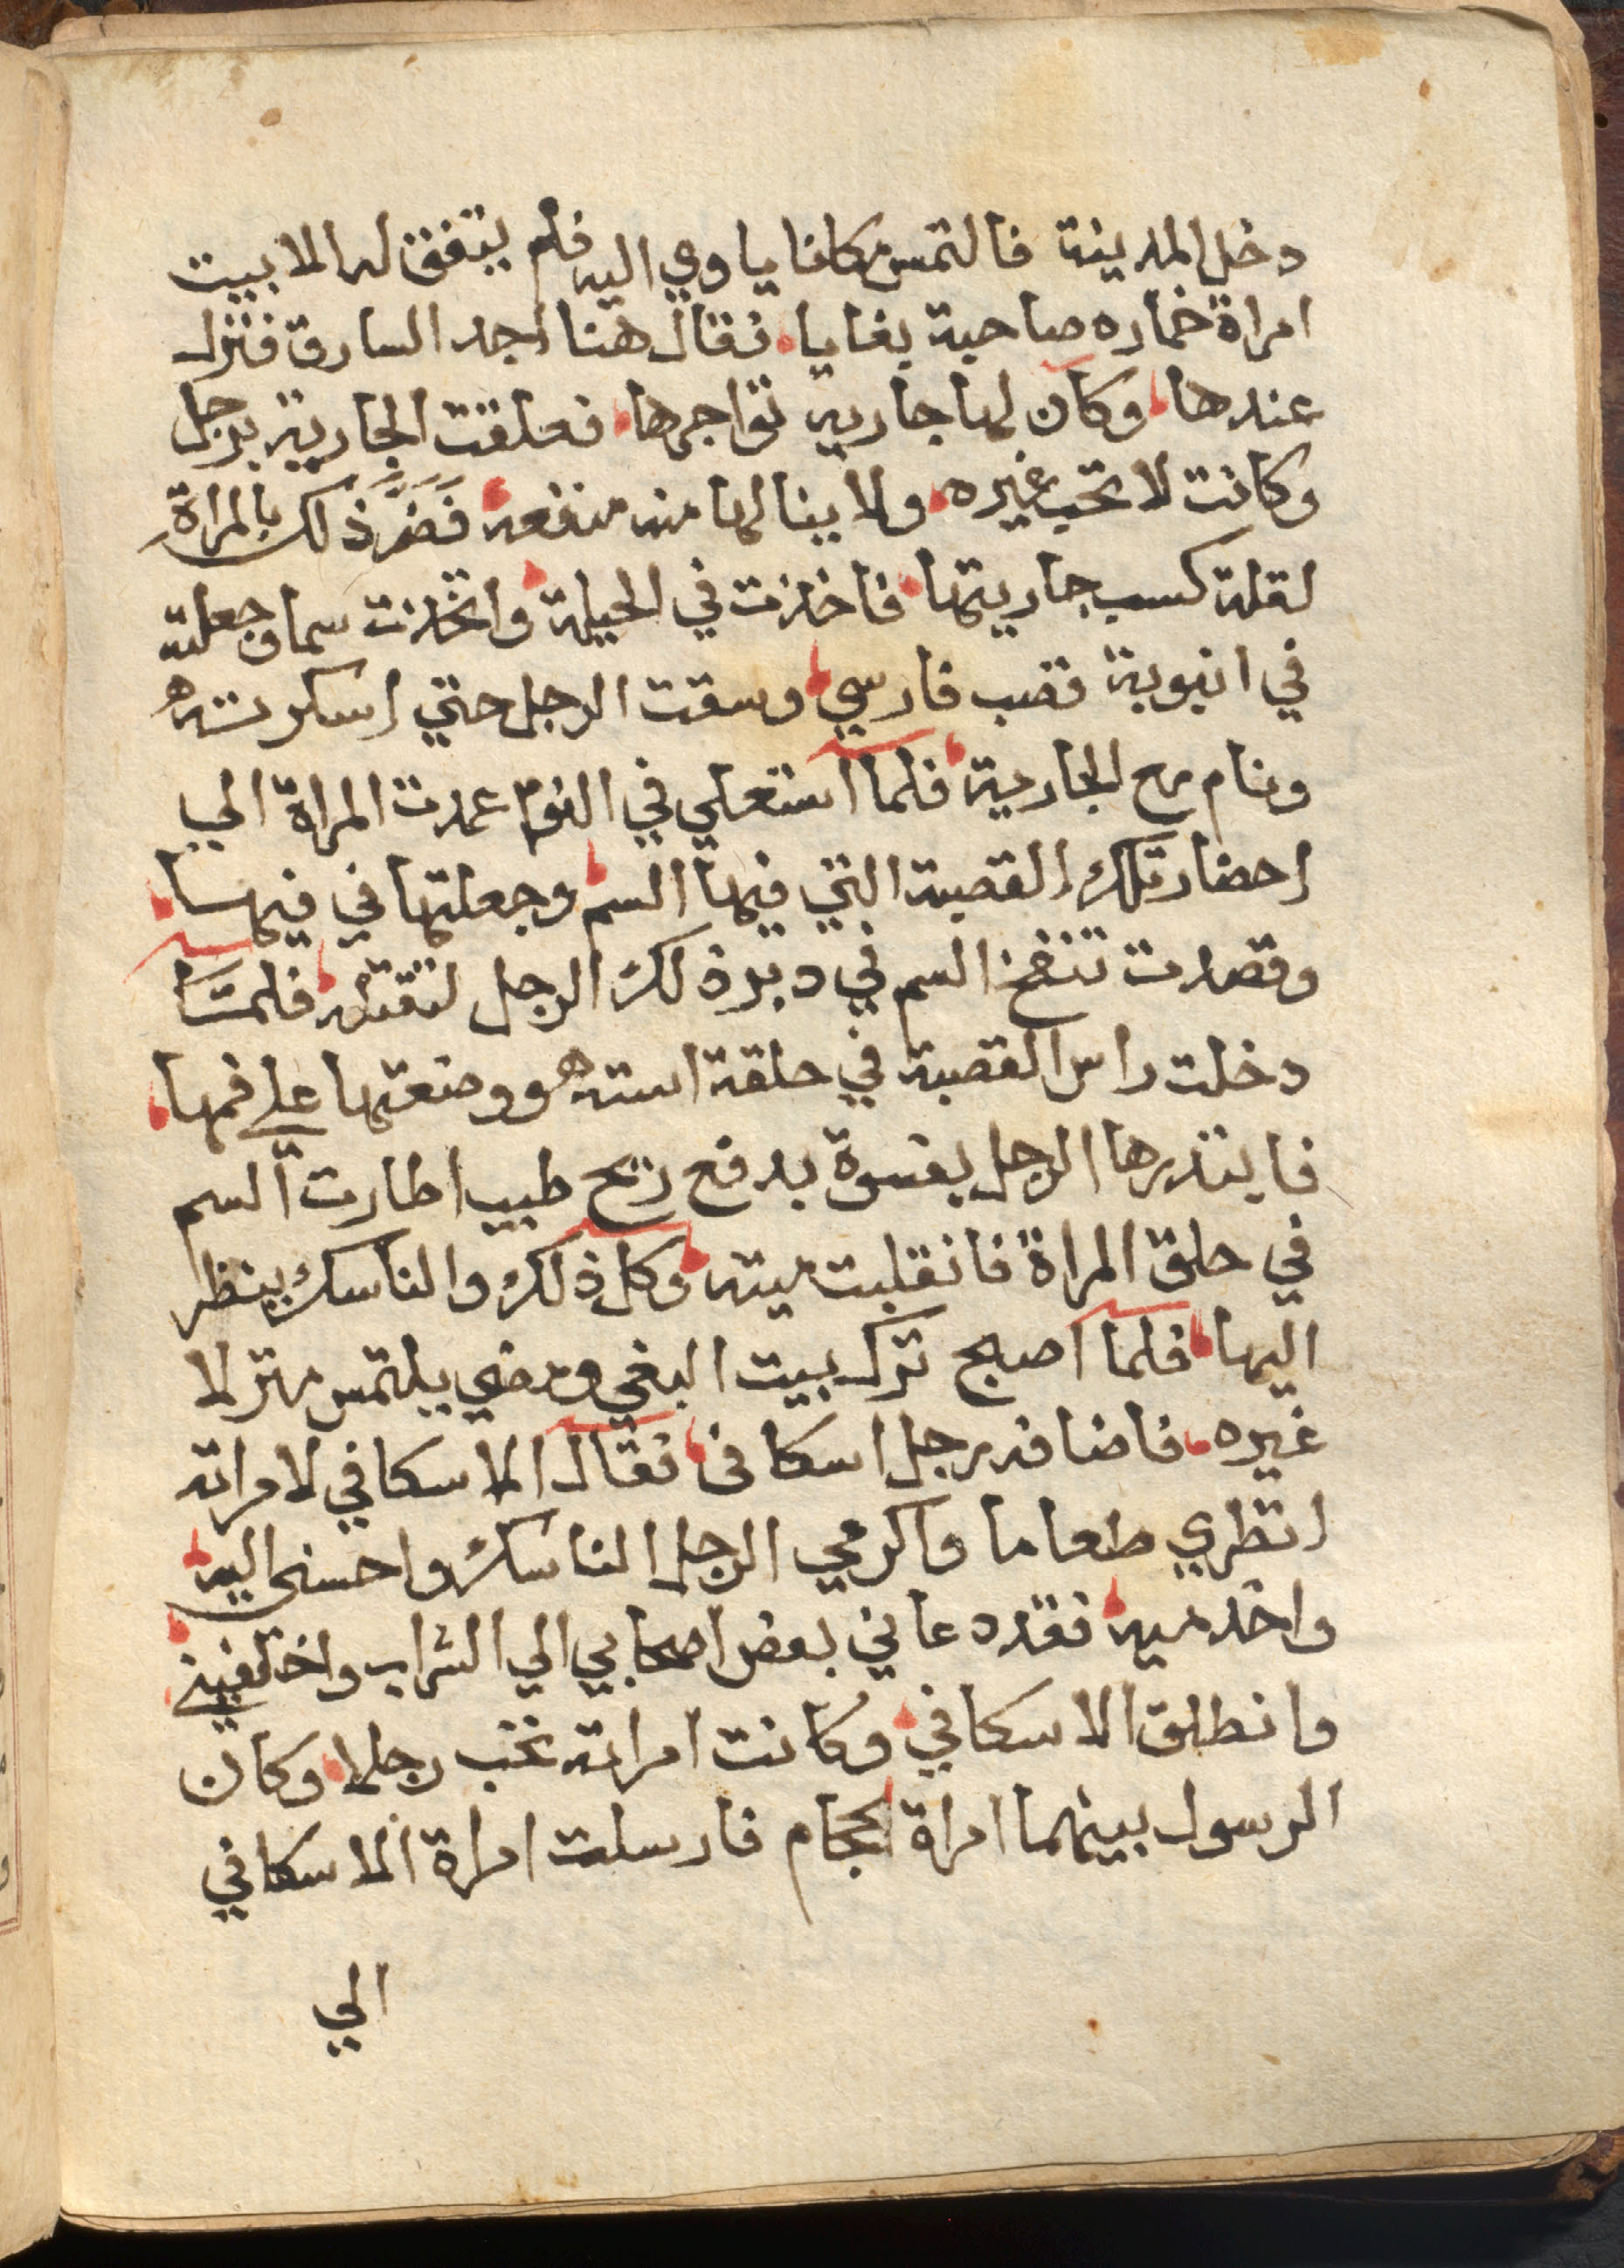 دخل المدينة فالتمس مكانا ياوي اليه فلم يتفق له الا بيت
امراة خماره صاحبة بغايا فقال هنا اجد السارق فنزل
عندها وكان لها جاريه تواجرها فعلقت الجارية برجل
وكانت لا تحب غيره ولا ينالها منه منفعة فَضَرَّ ذلك بالمراة
لقلة كسب جاريتها فاخذت في الحيلة واتخذت سما وجعلته
في انبوبة قصب فارسي وسقت الرجل حتي اسكرته
ونام مع الجارية فلما استعلي في النوم عمدت المراة الي
احضار تلك القصبة التي فيها السم وجعلتها في فيها
وقصدت تنفخ السم في دبر ذلك الرجل لتقتله فلما
دخلت راس القصبة في حلقة استه ووضعتها علي فمها
فابتدرها الرجل بفسوة بدفع ريح طيب اطارت السم
في حلق المراة فانقلبت ميته وكل ذلك والناسك ينظر
اليها فلما اصبح ترك بيت البغي ومضي يلتمس منزلا
غيره فاضافه رجل اسكافي فقال الاسكافي لامراته
انظري طعاما واكرمي الرجل الناسك واحسني اليه
واخدميه فقد دعاني بعض اصحابي الي الشراب
وانطلق الاسكافي وكانت امراته تحب رجلا وكان
الرسول بينهما امراة الحجام فارسلت امراة الاسكافي
الي